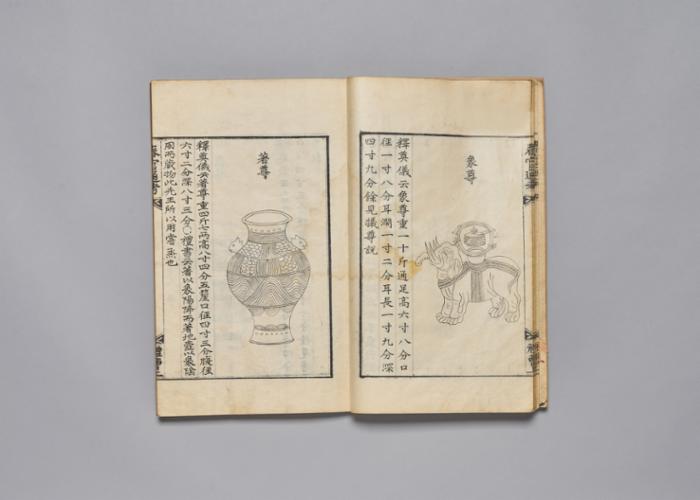 象尊
釋奠儀云象尊重一十斤通足高六寸八分口
徑一寸八分耳濶一寸二分耳長一寸九分深
四寸九分餘見犧尊說
著尊
釋奠儀云著尊重四斤七兩高八寸四分五釐口徑四寸三分腹徑
六寸二分深八寸三分○禮書云著以象陽降而著地壺以象陰
周而藏物此先王所以用嘗烝也
春官通考